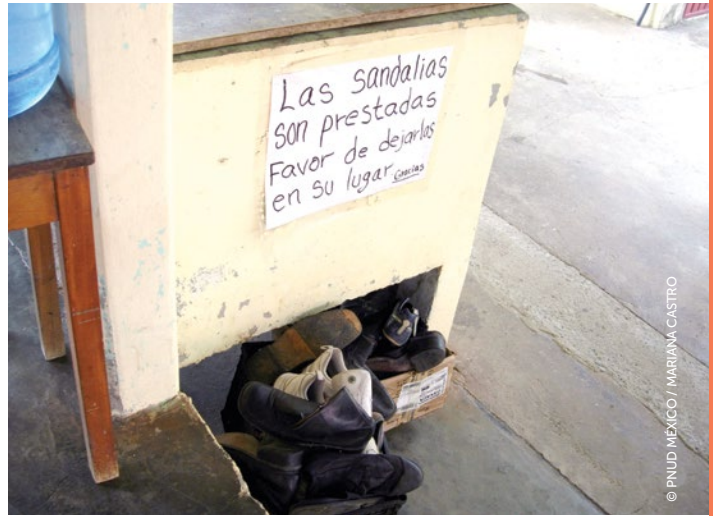 Las sandalias
son prestadas
Favor de dejarlas
en su lugar Gracias
© PNUD MÉXICO / MARIANA CASTRO